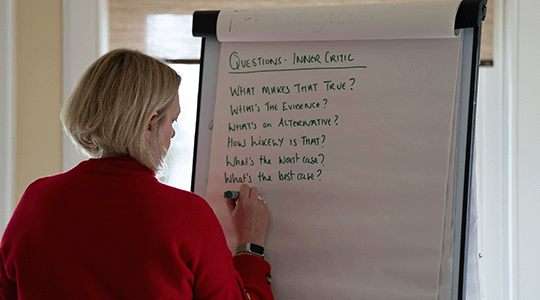 Questions - Inner Critic
What makes that true?
What's the Evidence?
What's an Alternative?
How Likely is That?
What's the worst case?
What's the best case?